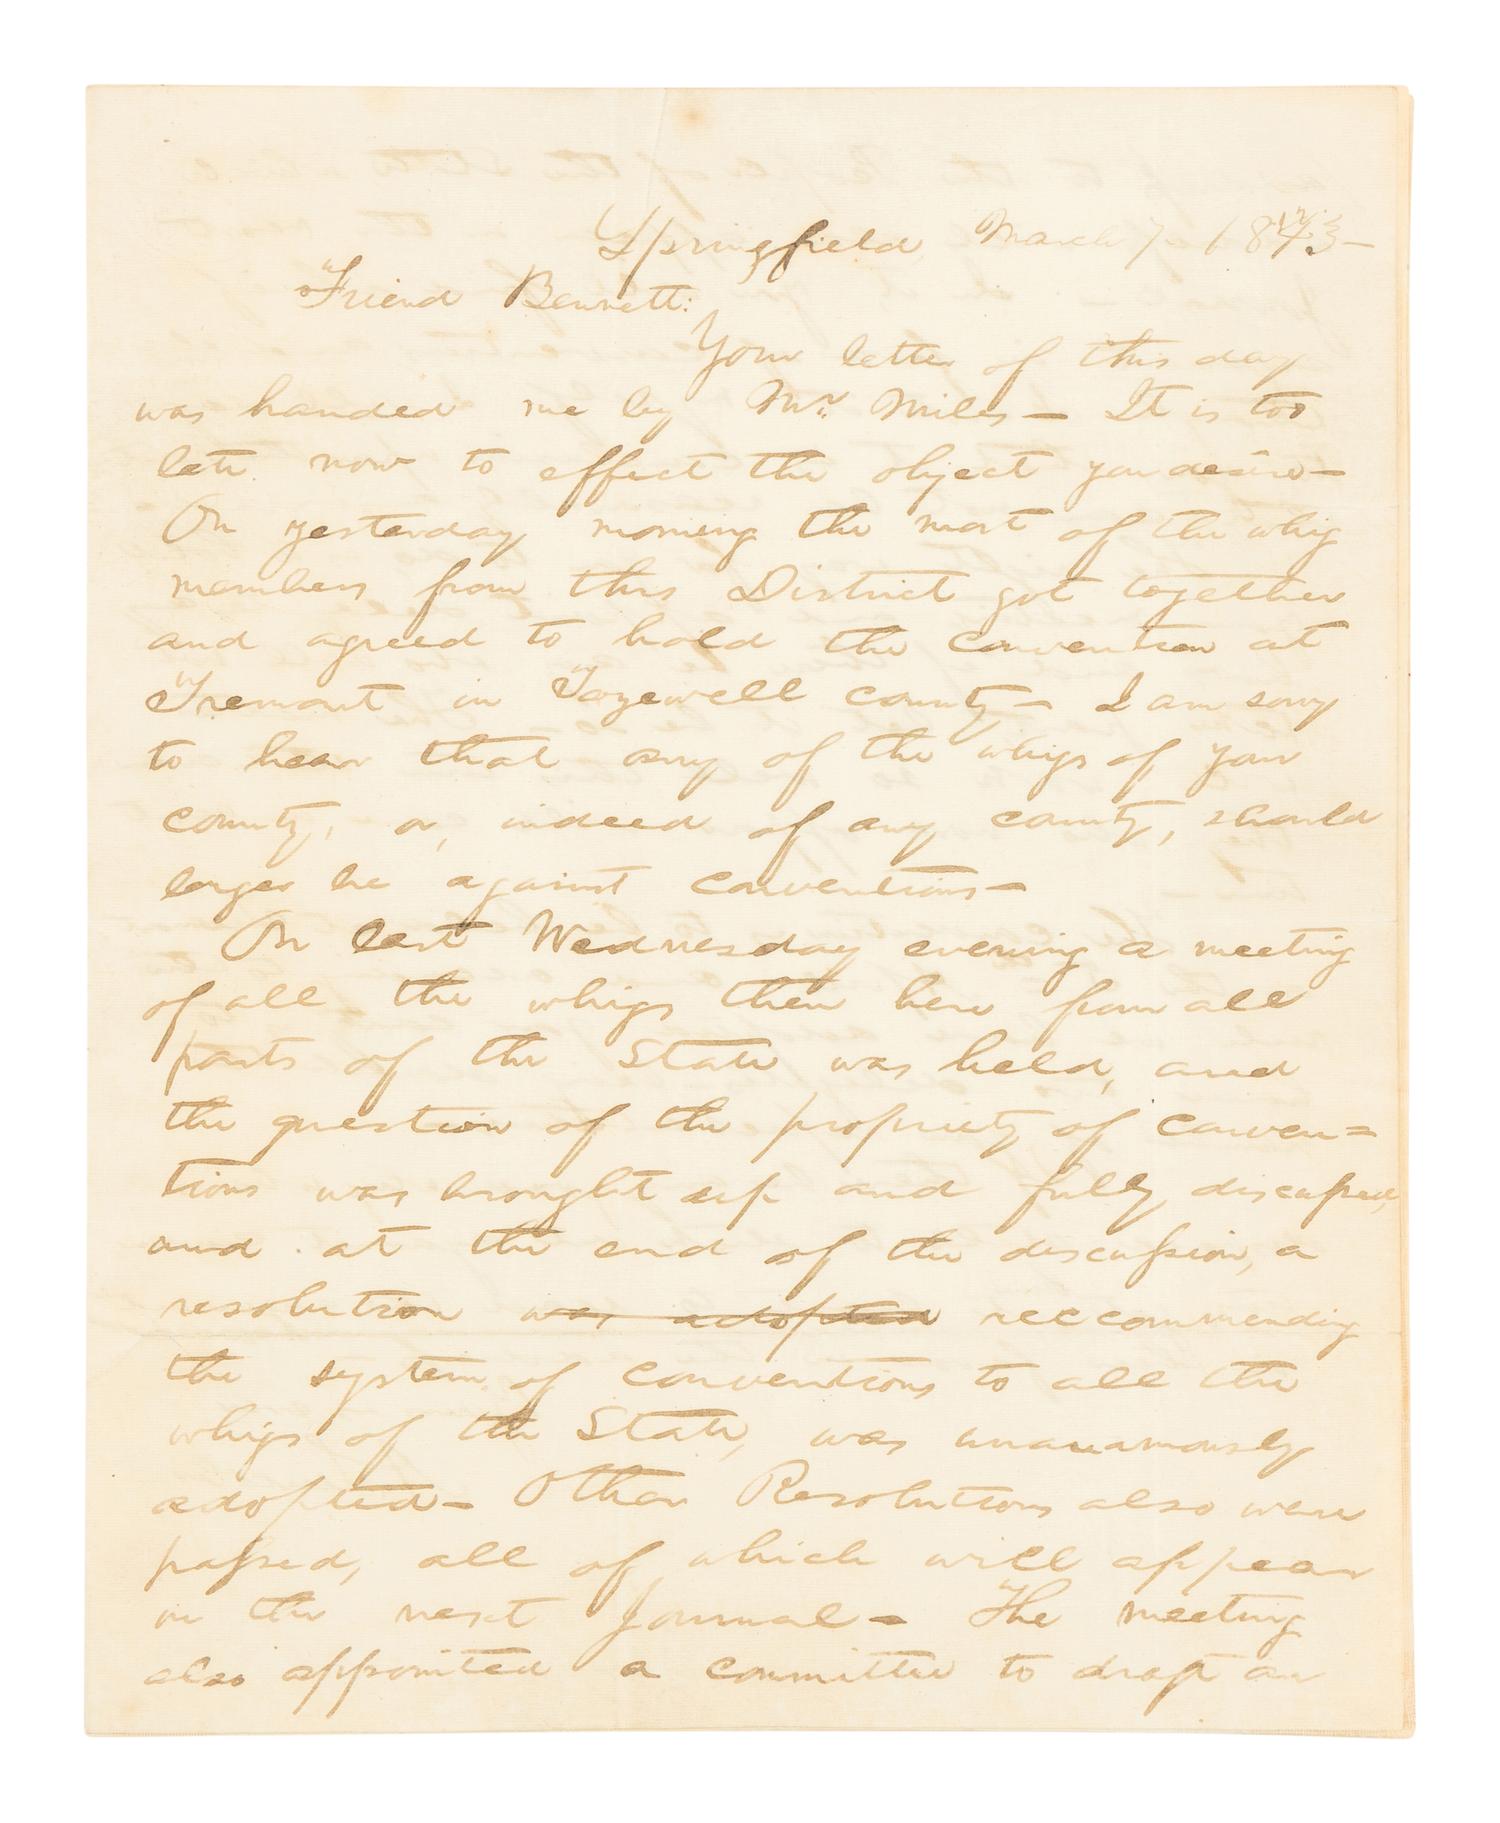 Springfield, March 7. 1843 -
Friend Bennett:
Your letter of this day
was handed me by Mr. Miles - It is too
late now to effect the object you desire -
On yesterday morning the most of the whig
members from this District got together
and agreed to hold the convention at
Tremont in Tazewell county - I am sorry
to hear that any of the whigs of your
county, or, indeed of any county, should
longer be against conventions -
On last Wednesday evening a meeting
of all the whigs then here from all
parts of the State was held, and
the question of the propriety of conven=
tions was brought up and fully discussed,
and at the end of the discussion, a
resolution was adopted reccommending
the system of conventions to all the
whigs of the State, was unanamously
adopted - Other Resolutions also were
passed, all of which will appear
in the next Journal - The meeting
also appointed a committee to draft an